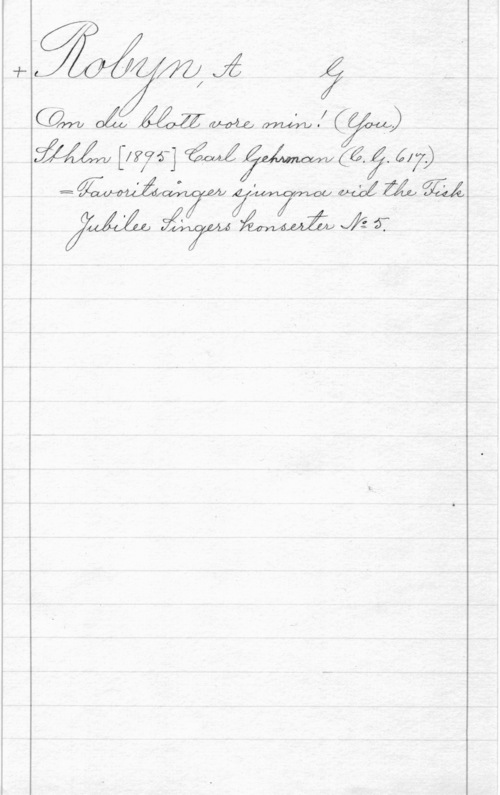 + Robyn, A G
Om du blott vore min! (You)
Sthlm [1895] Carl Gehrman (C. G. 617.)
= Favoritsånger sjungna vid the Fisk
Jubilee Singers konserter № 5.